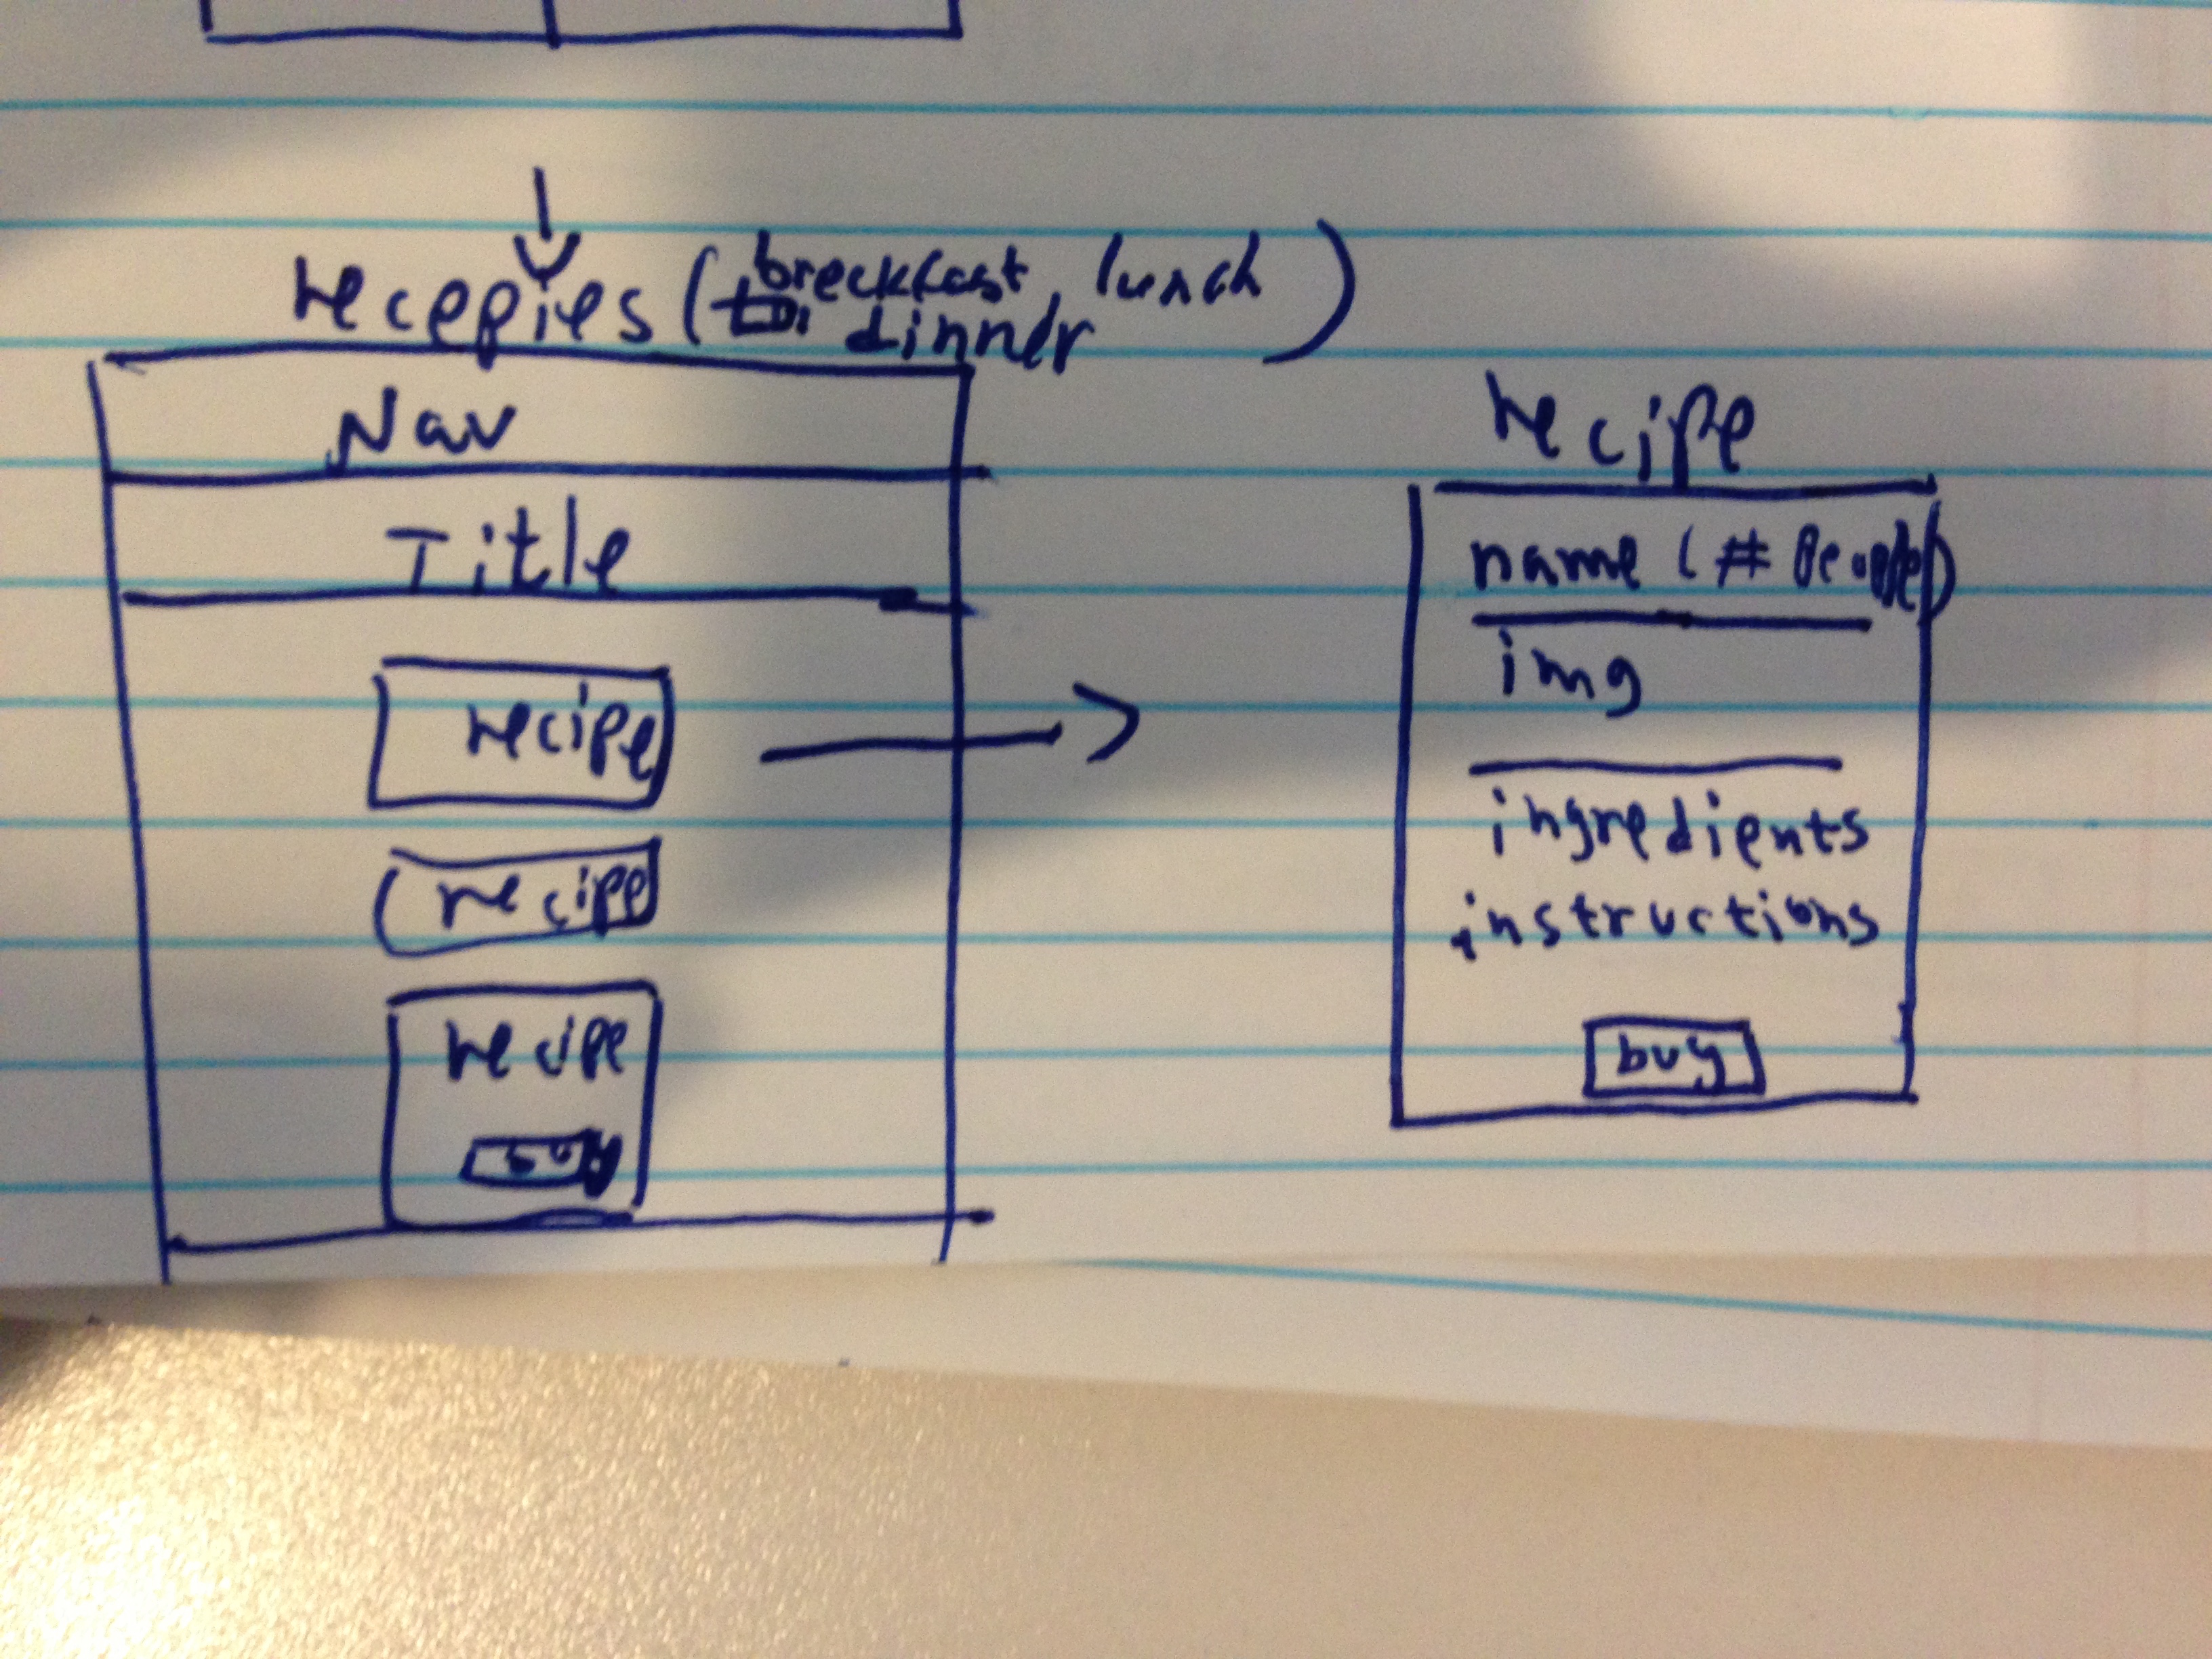 recepies (breckfast, lunch
dinner)
Nav
Title
recipe
recipe
recipe
buy
recipe
name (# People)
img
ingredients
instructions
buy